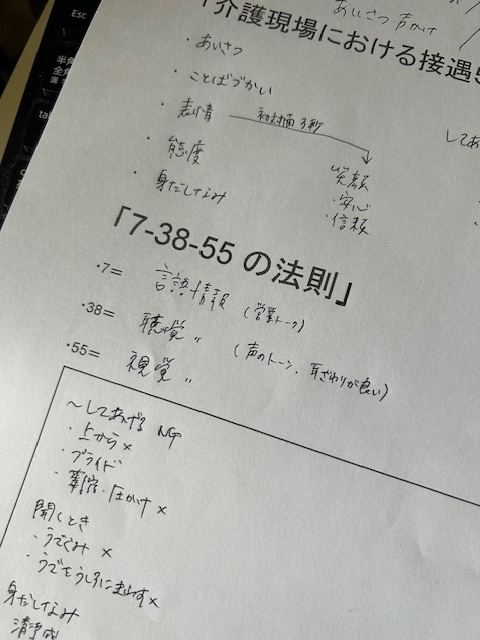 あいさつ 声かけ
「介護現場における接遇5
・あいさつ
・ことばづかい
・表情 初対面 3秒
・態度
・身だしなみ
笑顔
・安心
・信頼
してあ
「7-38-55 の法則」
・7= 言語情報 (営業トーク)
・38= 聴覚 〃 (声のトーン、耳ざわりが良い)
・55= 視覚 〃
～してあげる NG
・上から ×
・プライド
・圧かけ ×
聞くとき
・うでぐみ ×
・うでをうしろにまわす×
身だしなみ
清浄感
Esc
半角
全角